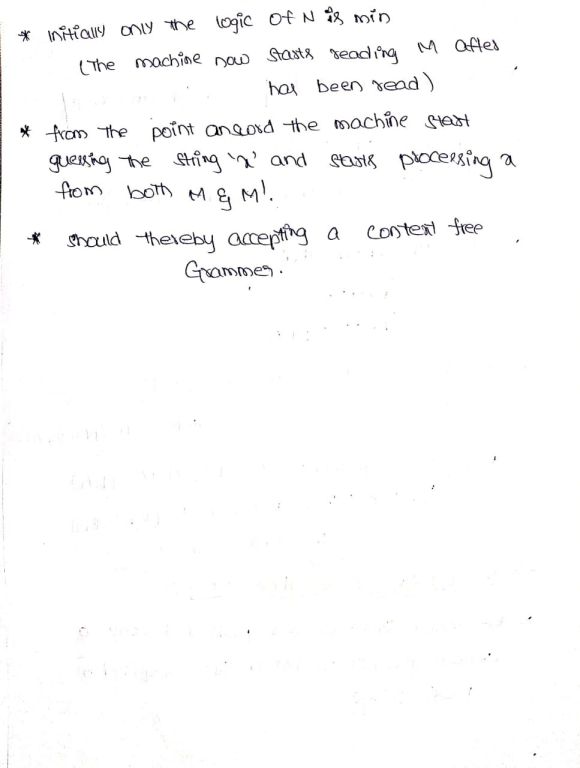 * initially only the logic of N is min
(The machine now starts reading M after
has been read)
* from the point onword the machine start
guessing the string 'x' and starts processing x
from both M & M'.
* should thereby accepting a context free
Grammer.